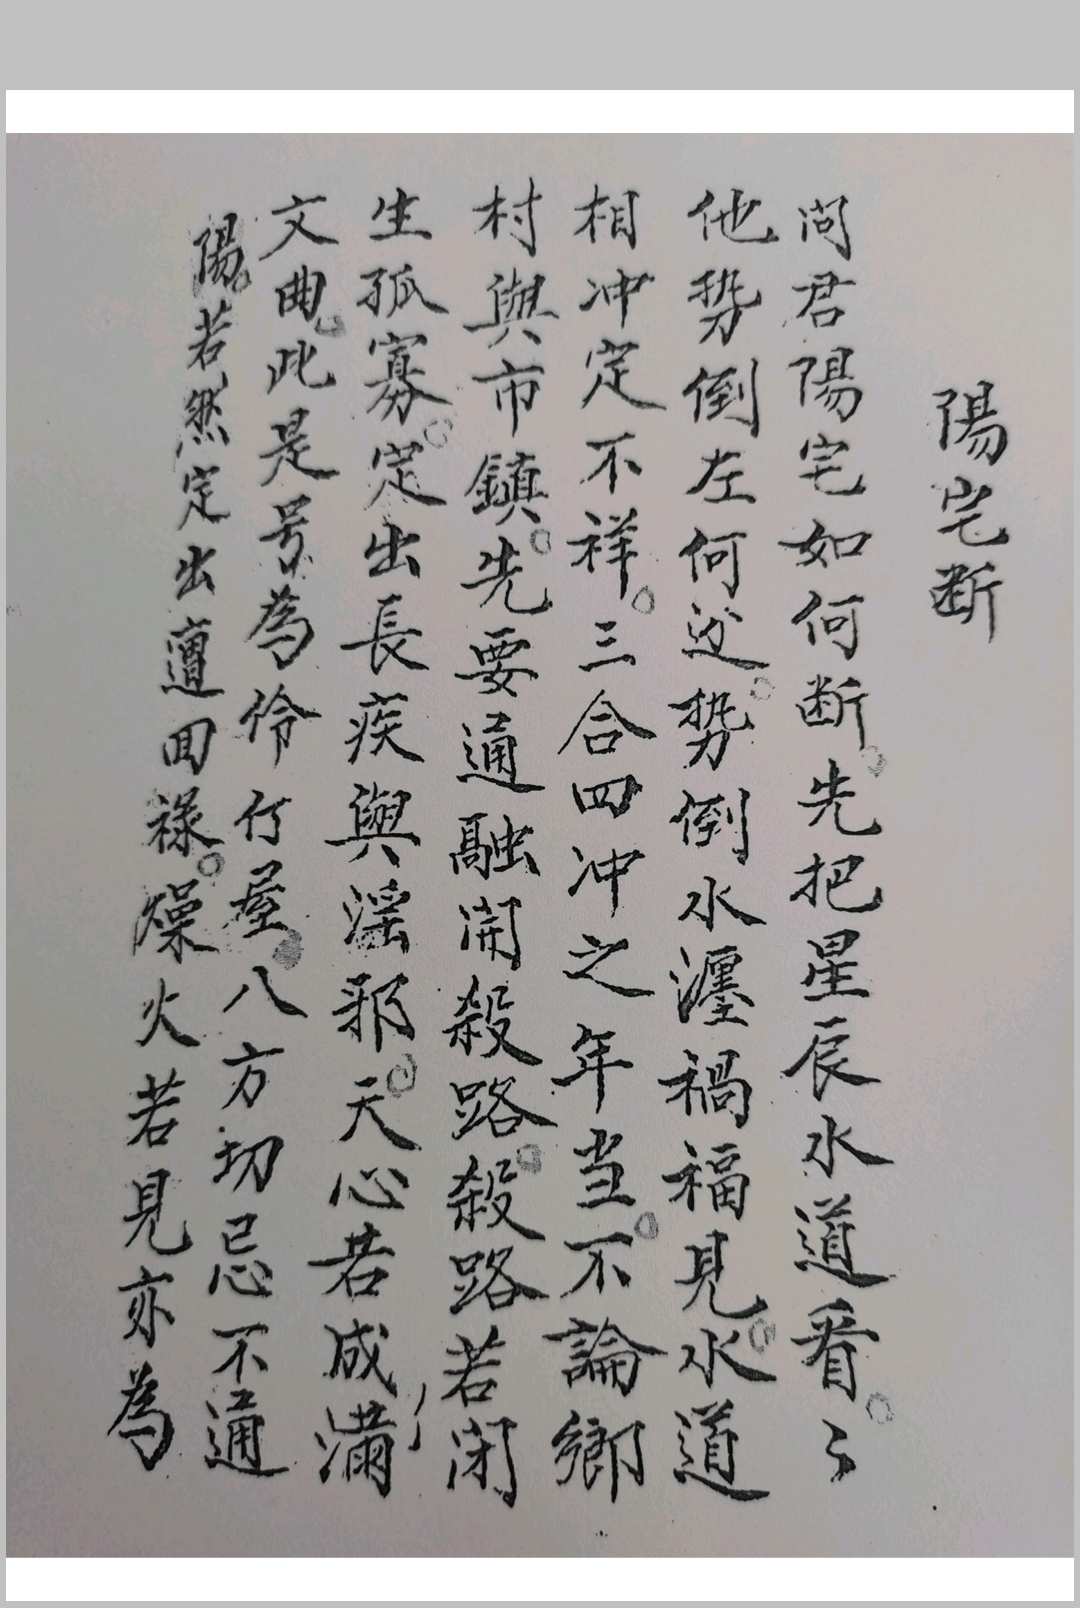 陽宅断
问君陽宅如何断。先把星辰水道看。〻
他势倒左何边。势倒水瀍禍福見。水道
相冲定不祥。三合四冲之年当。不論鄉
村與市鎮。先要通融開殺路。殺路若闭
生孤寡。定出長疾與淫邪。天心若成满
文曲。此是号為伶仃屋。八方切忌不通
陽。若然定出遭回禄。燥火若見亦為